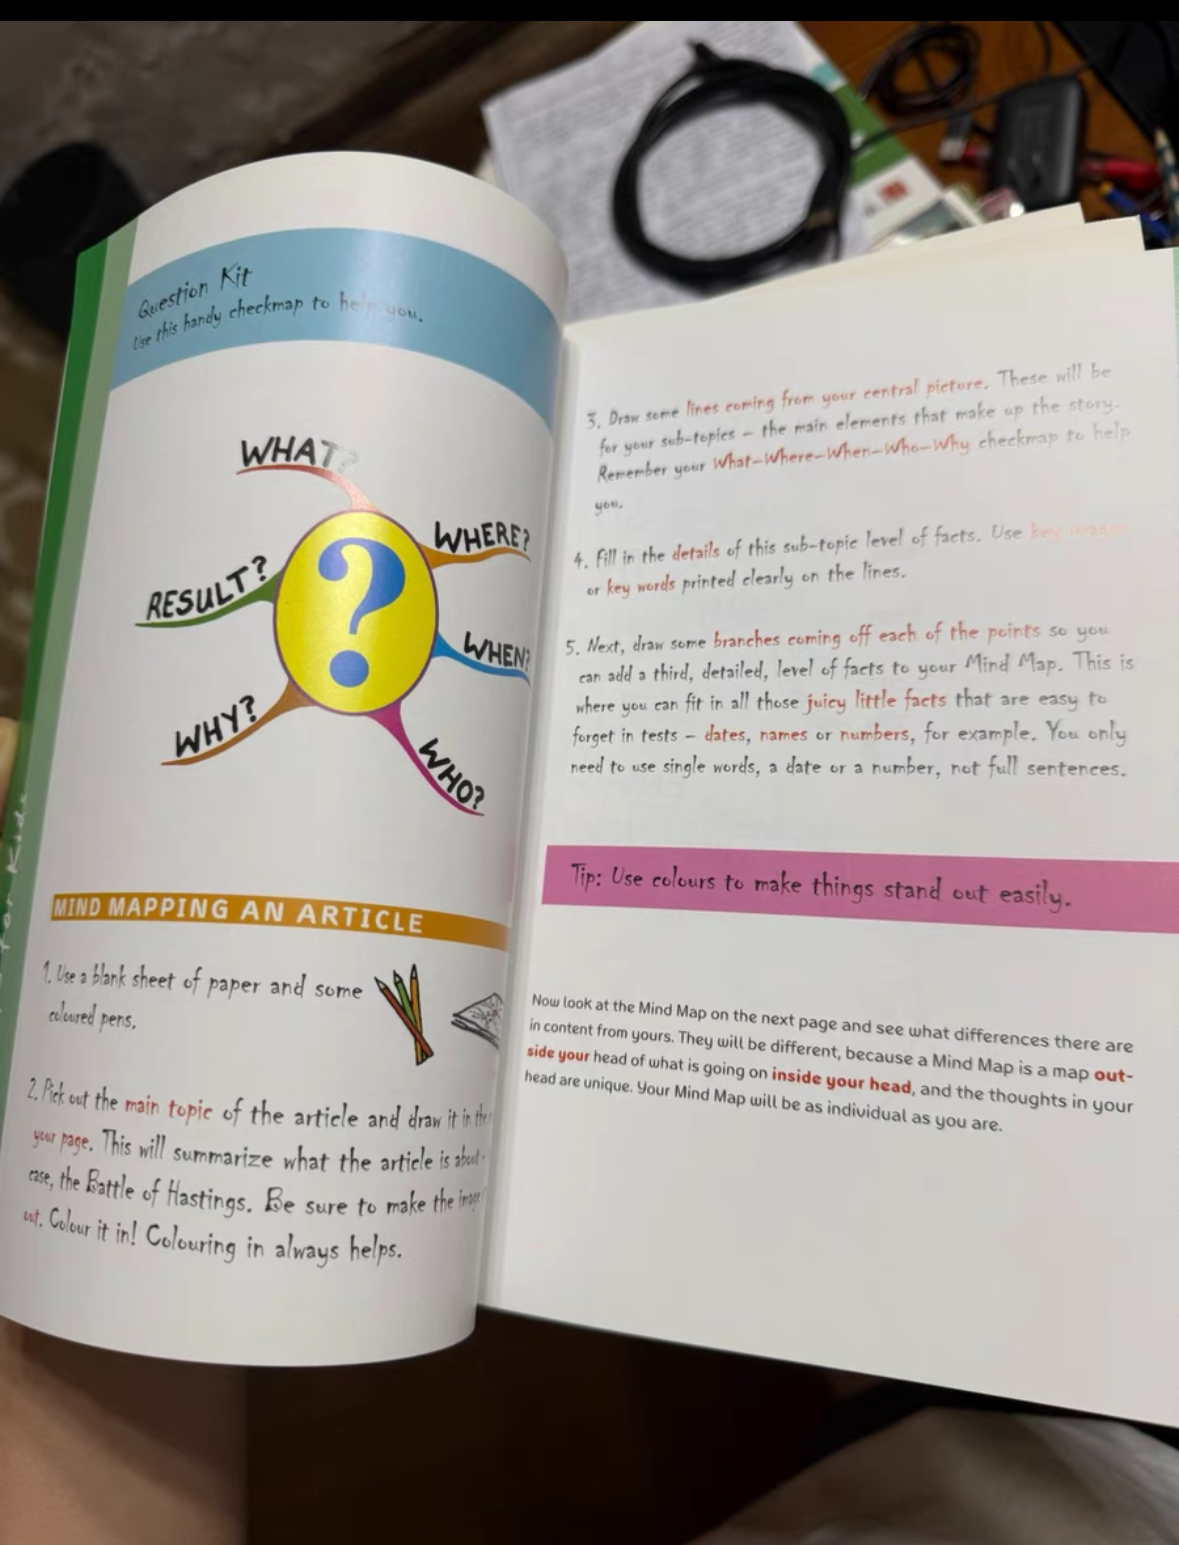 Question Kit
Use this handy checkmap to help you.
WHAT?
WHERE?
RESULT?
WHEN?
WHY?
WHO?
MIND MAPPING AN ARTICLE
1. Use a blank sheet of paper and some
coloured pens.
2. Pick out the main topic of the article and draw it in the
your page. This will summarize what the article is about –
case, the Battle of Hastings. Be sure to make the image
out. Colour it in! Colouring in always helps.
for Kids
3. Draw some lines coming from your central picture. These will be
for your sub-topics – the main elements that make up the story.
Remember your What–Where–When–Who–Why checkmap to help
you.
4. Fill in the details of this sub-topic level of facts. Use key images
or key words printed clearly on the lines.
5. Next, draw some branches coming off each of the points so you
can add a third, detailed, level of facts to your Mind Map. This is
where you can fit in all those juicy little facts that are easy to
forget in tests – dates, names or numbers, for example. You only
need to use single words, a date or a number, not full sentences.
Tip: Use colours to make things stand out easily.
Now look at the Mind Map on the next page and see what differences there are
in content from yours. They will be different, because a Mind Map is a map out-
side your head of what is going on inside your head, and the thoughts in your
head are unique. Your Mind Map will be as individual as you are.